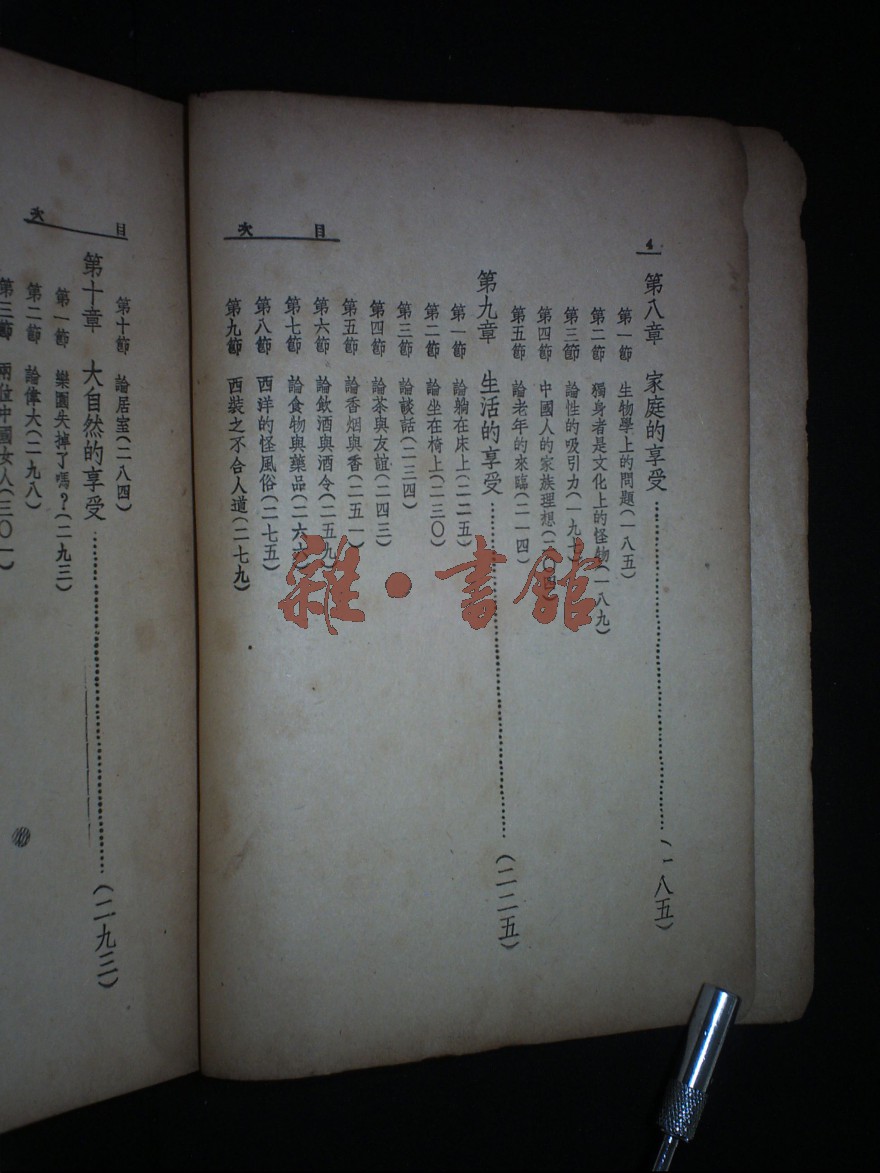 4
目次
第八章 家庭的享受……(一八五)
第一節 生物學上的問題(一八五)
第二節 獨身者是文化上的怪物(一八九)
第三節 論性的吸引力(一九七)
第四節 中國人的家族理想(二〇四)
第五節 論老年的來臨(二一四)
第九章 生活的享受……(二二五)
第一節 論躺在床上(二二五)
第二節 論坐在椅上(二三〇)
第三節 論談話(二三四)
第四節 論茶與友誼(二四三)
第五節 論香烟與香(二五一)
第六節 論飲酒與酒令(二五九)
第七節 論食物與藥品(二六六)
第八節 西洋的怪風俗(二七五)
第九節 西裝之不合人道(二七九)
雜·書館
目次
第十節 論居室(二八四)
第十章 大自然的享受……(二九三)
第一節 樂園失掉了嗎？(二九三)
第二節 論偉大(二九八)
第三節 兩位中國女人(三〇一)